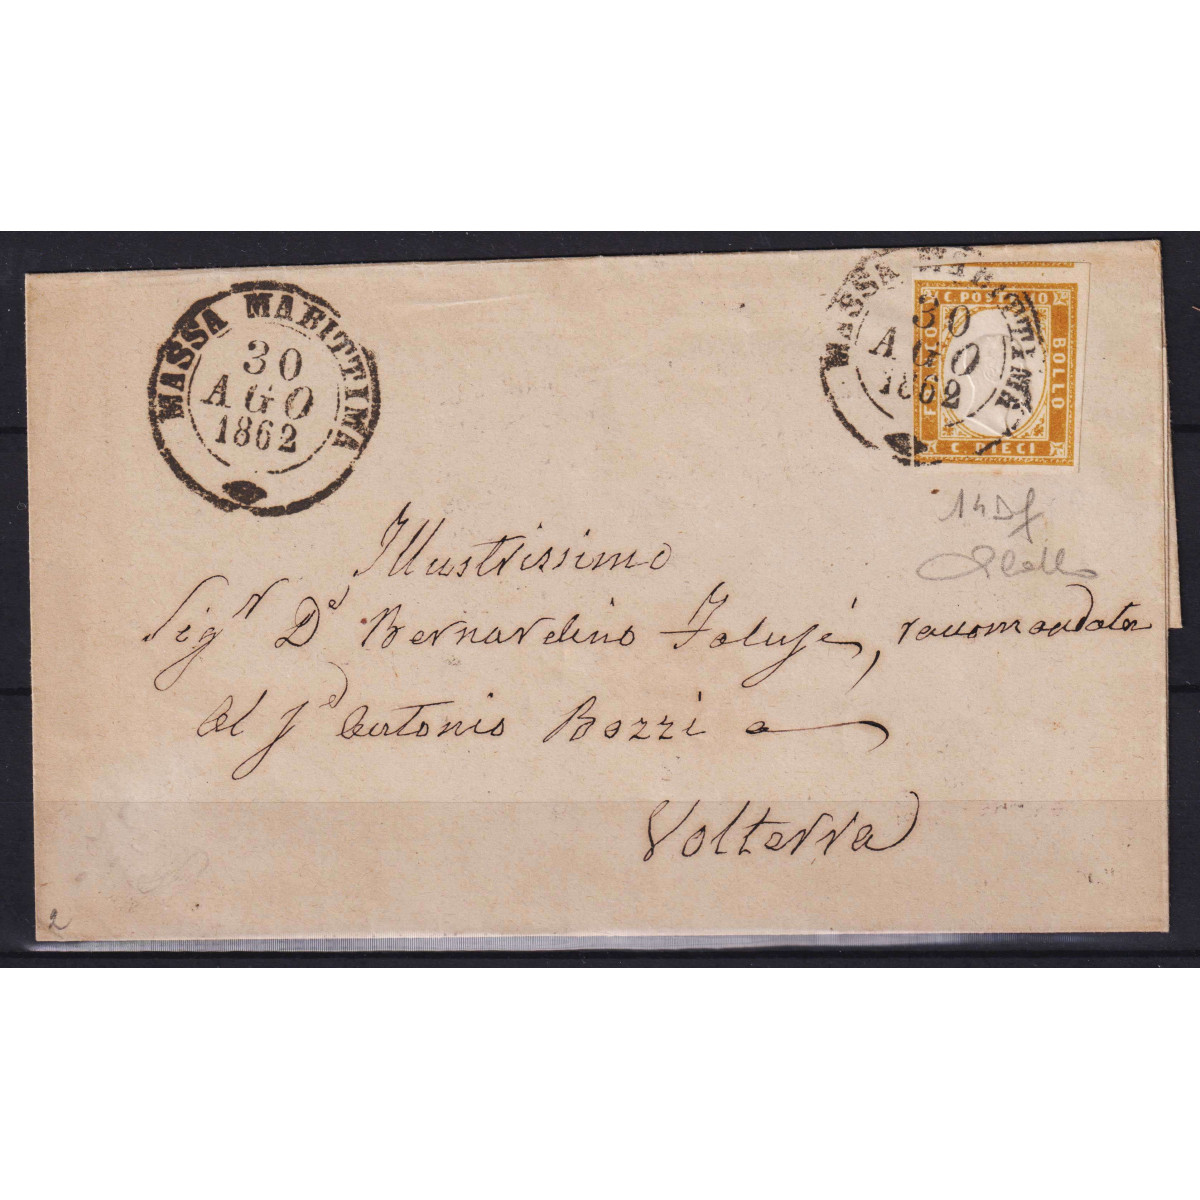 MASSA MARITTIMA
30
AGO
1862
MASSA MARITTIMA
30
AGO
1862
C. POSTE
BOLLO
C. DIECI
14Df
Illustrissimo
Sigr De Bernardino Falusi, raccomandata
Al Sd Antonio Bozzi a
Volterra
2